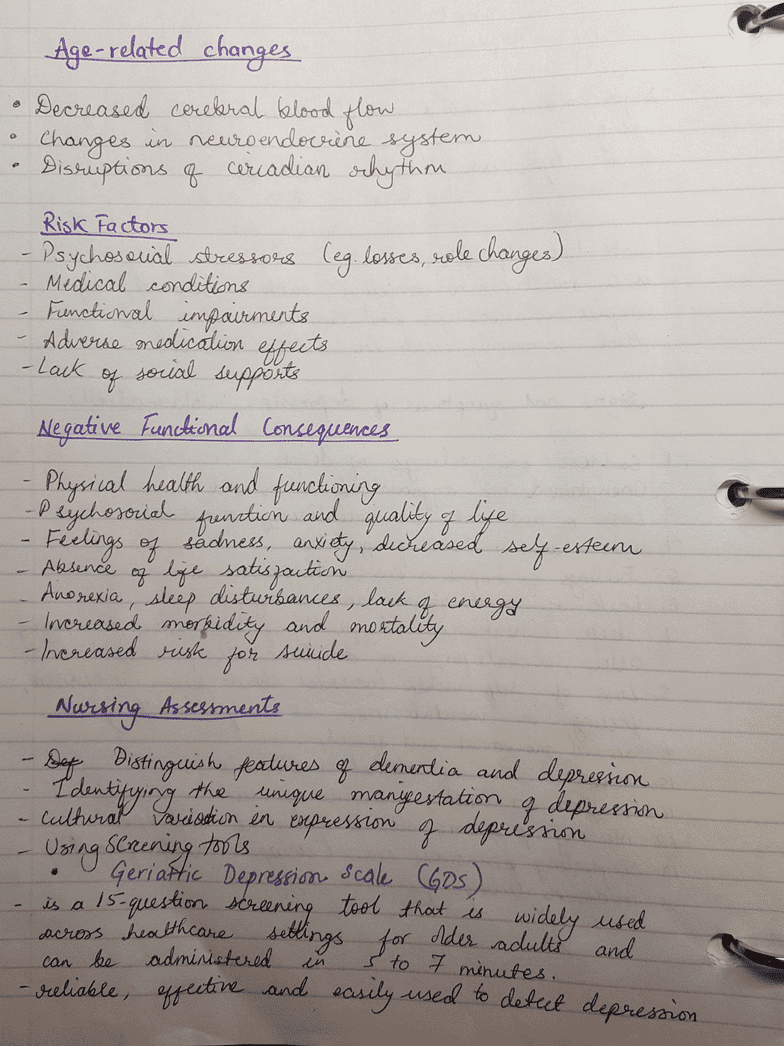 Age-related changes
• Decreased cerebral blood flow
• Changes in neuroendocrine system
• Disruptions of circadian rhythm
Risk Factors
- Psychosocial stressors (eg. losses, role changes)
- Medical conditions
- Functional impairments
- Adverse medication effects
- Lack of social supports
Negative Functional Consequences
- Physical health and functioning
- Psychosocial function and quality of life
- Feelings of sadness, anxiety, decreased self-esteem
- Absence of life satisfaction
- Anorexia, sleep disturbances, lack of energy
- Increased morbidity and mortality
- Increased risk for suicide
Nursing Assessments
- Distinguish features of dementia and depression
- Identifying the unique manifestation of depression
- Cultural variation in expression of depression
- Using screening tools
• Geriatric Depression Scale (GDS)
- is a 15-question screening tool that is widely used
across healthcare settings for older adults and
can be administered in 5 to 7 minutes.
- reliable, effective and easily used to detect depression